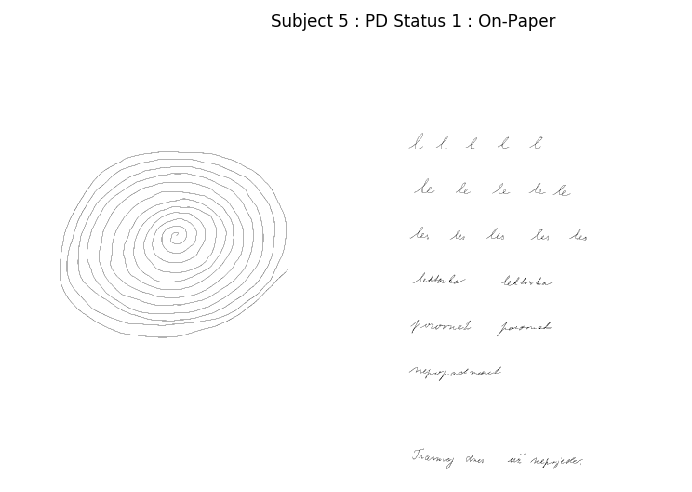 Subject 5 : PD Status 1 : On-Paper
l l l l l
le le le le le
les les les les les
lektorka lektorka
porovnat porovnat
nepopadnout
Tramvaj dnes už nepojede.